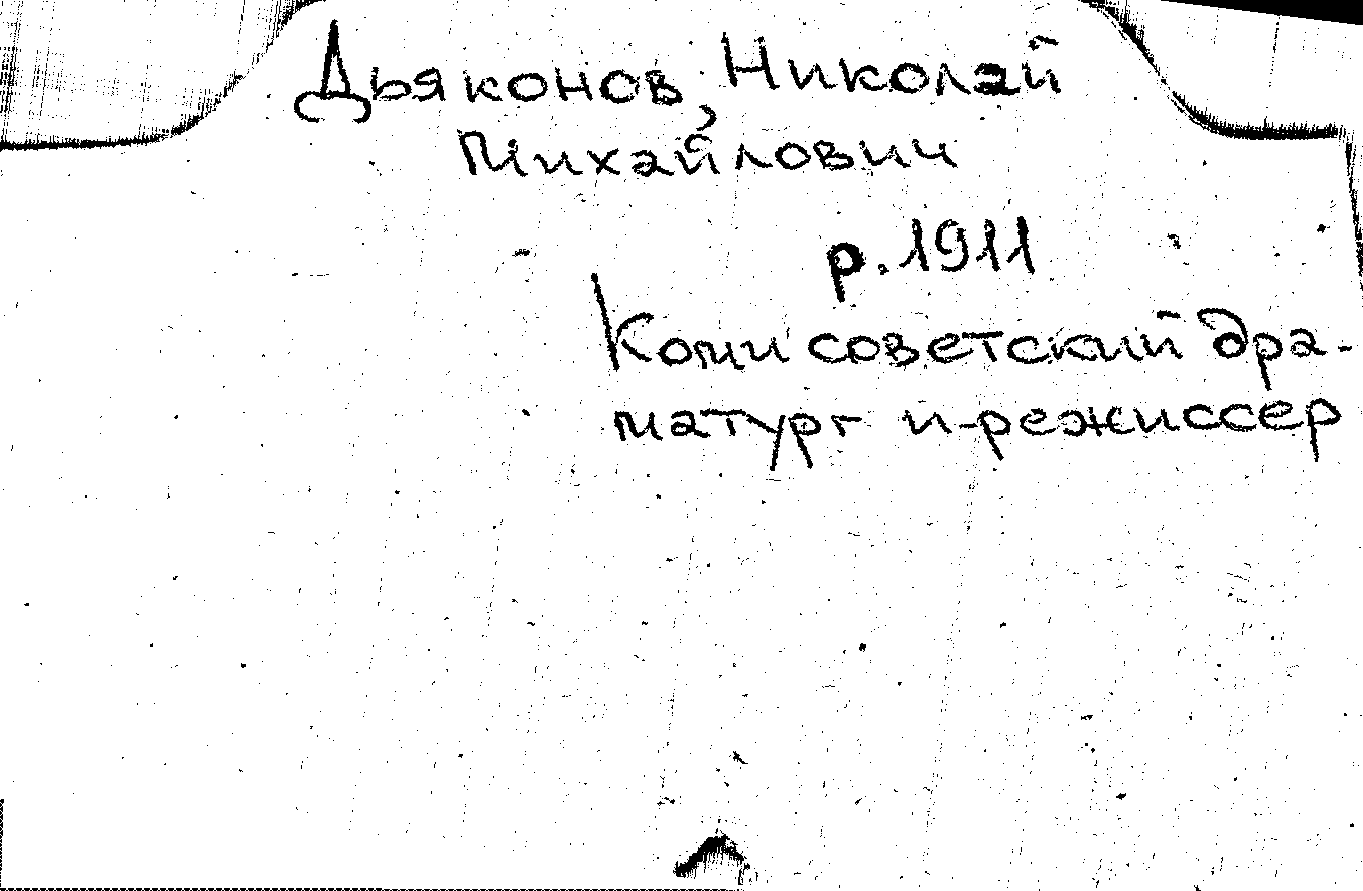 Дьяконов, Николай
Михайлович
р. 1911
Коми советский дра-
матург и режиссер